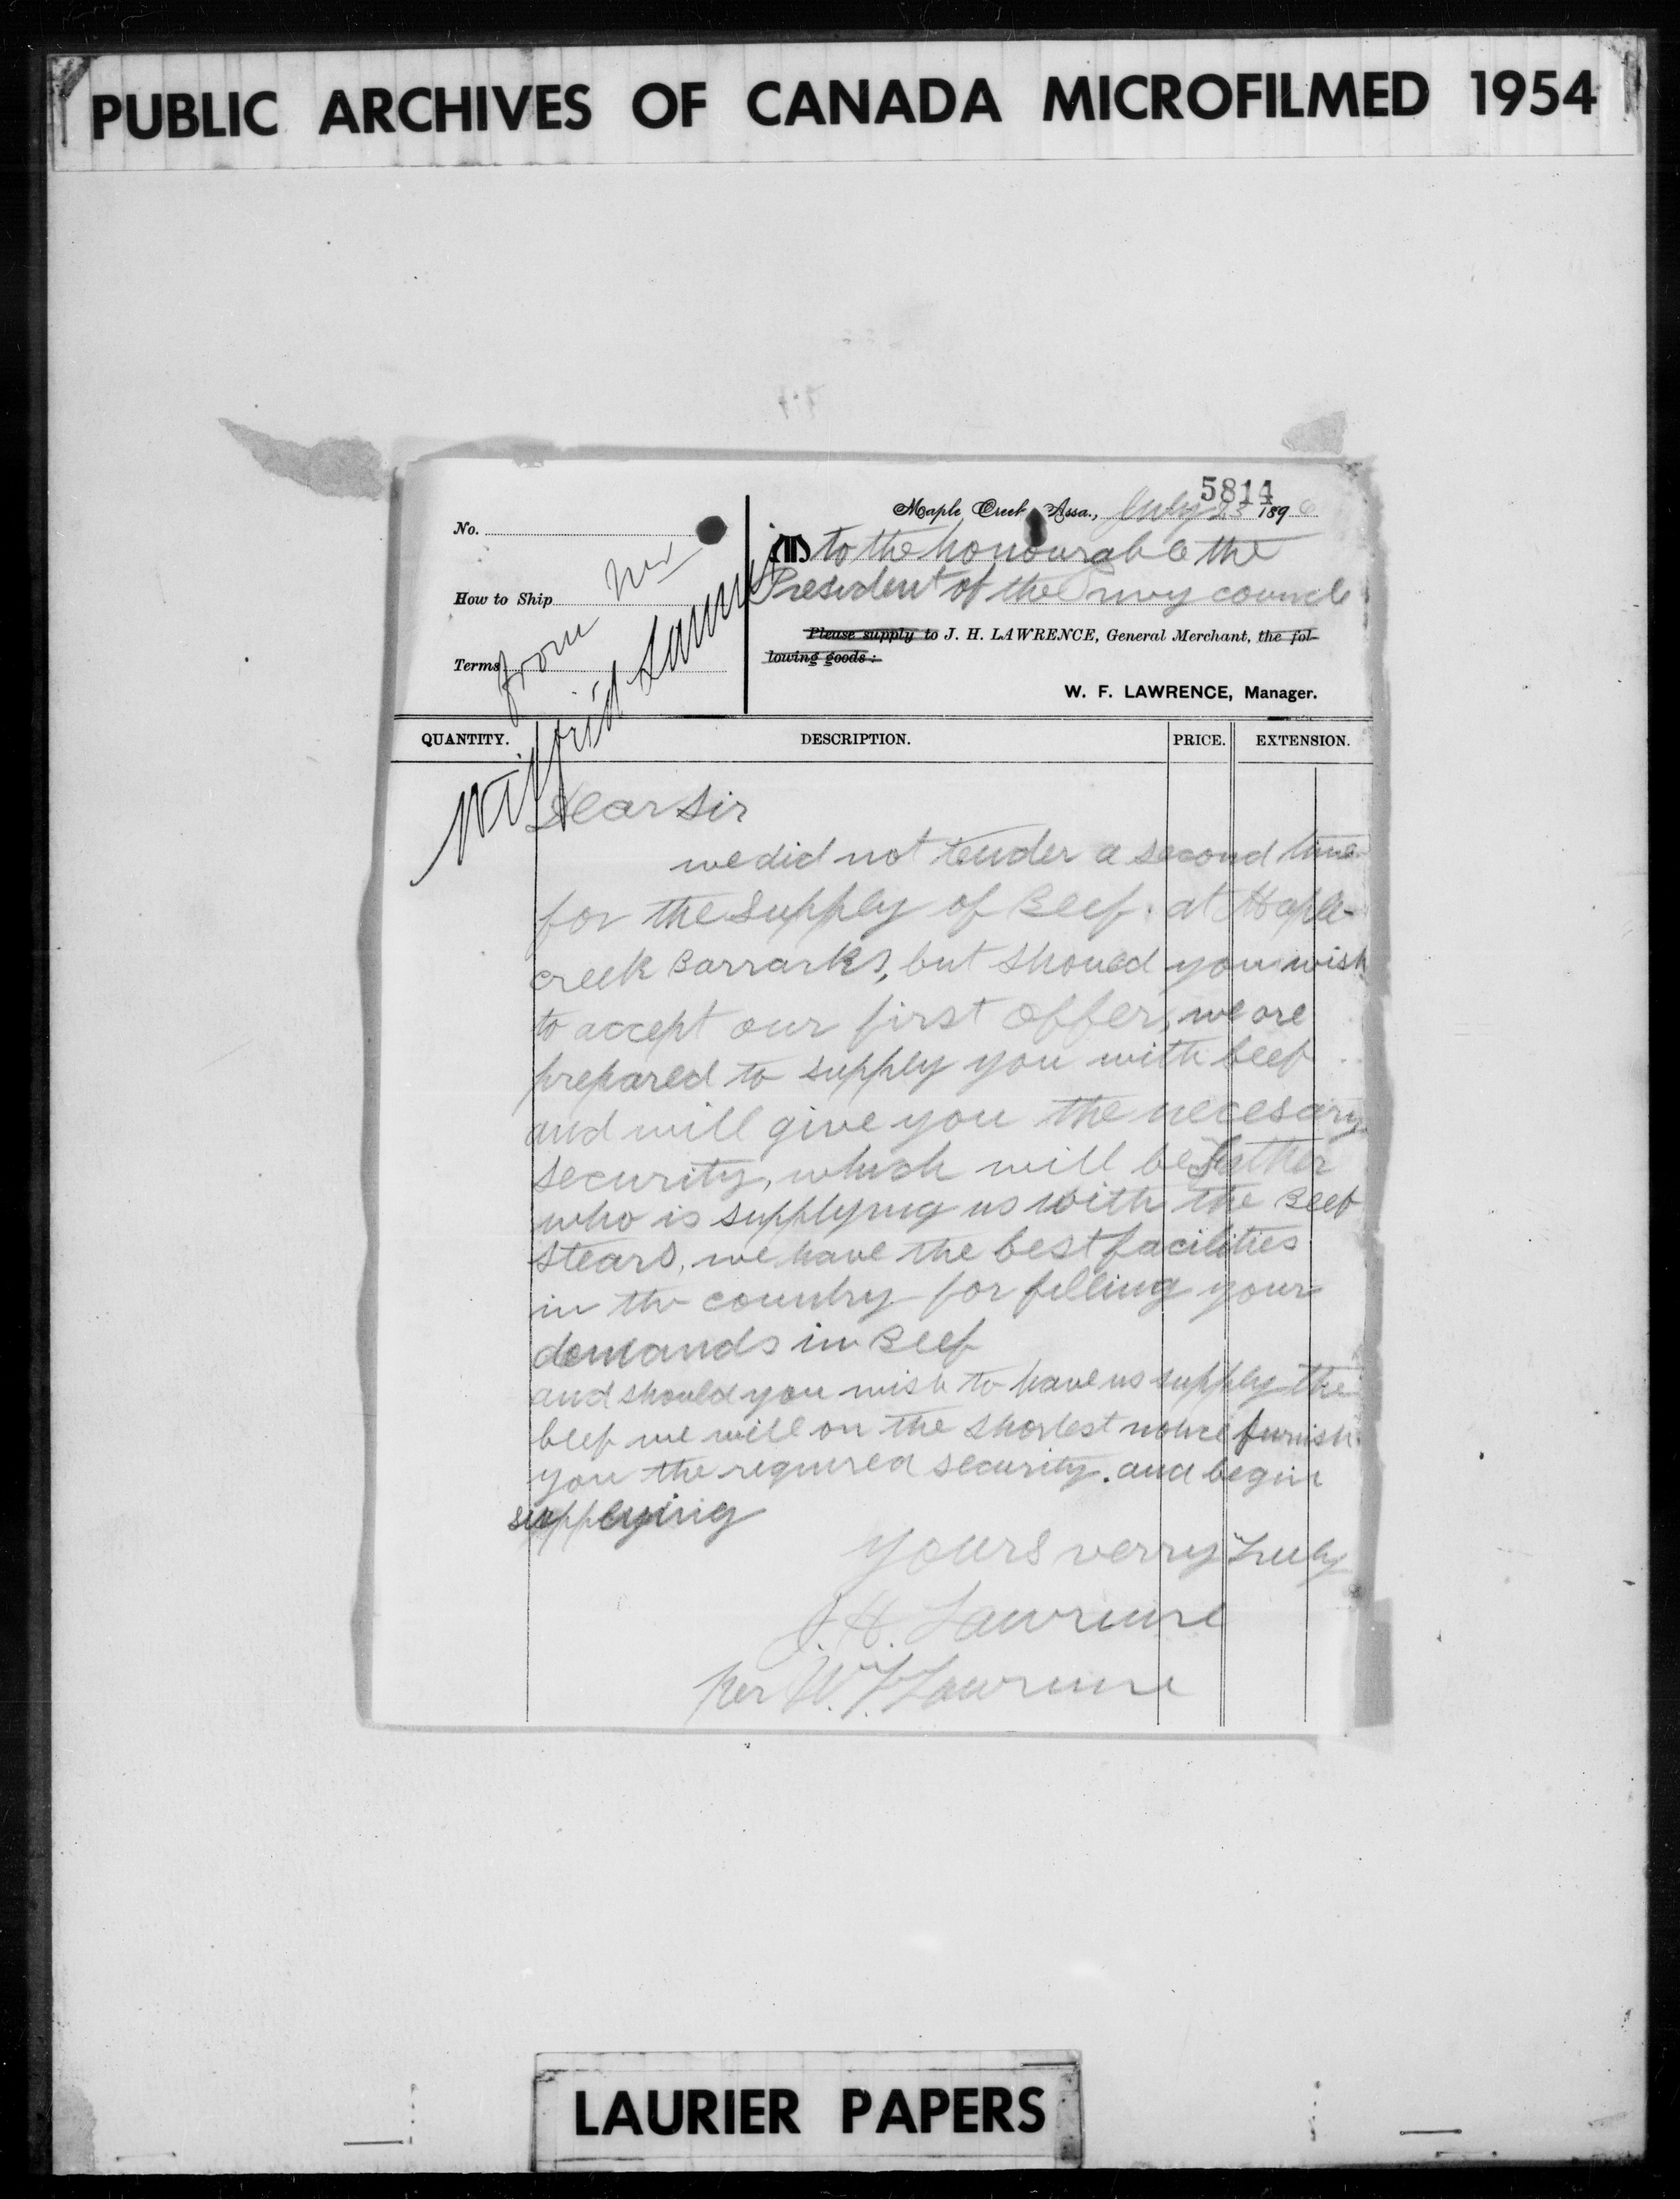 PUBLIC ARCHIVES OF CANADA MICROFILMED 1954
5814
Maple Creek Assa., July 23 1896
No.
M to the honourable the
How to Ship
President of the Privy councle
Please supply to J. H. LAWRENCE, General Merchant, the fol-
lowing goods:
Terms
W. F. LAWRENCE, Manager.
from
Wilfrid Laurier
QUANTITY. DESCRIPTION. PRICE. EXTENSION.
Dear Sir
we did not tender a second time
for the supply of Beef. at Maple-
creek Barracks, but should you wish
to accept our first offer, we are
prepared to supply you with beef
and will give you the necesary
security, which will be father
who is supplying us with the Beef
stears, we have the best facilities
in the country for filling your
demands in Beef
and should you wish to have us supply the
beef we will on the shortest notice furnish
you the required security. and begin
supplying
yours verry truly
J. H. Lawrence
Per W. F. Lawrence
LAURIER PAPERS